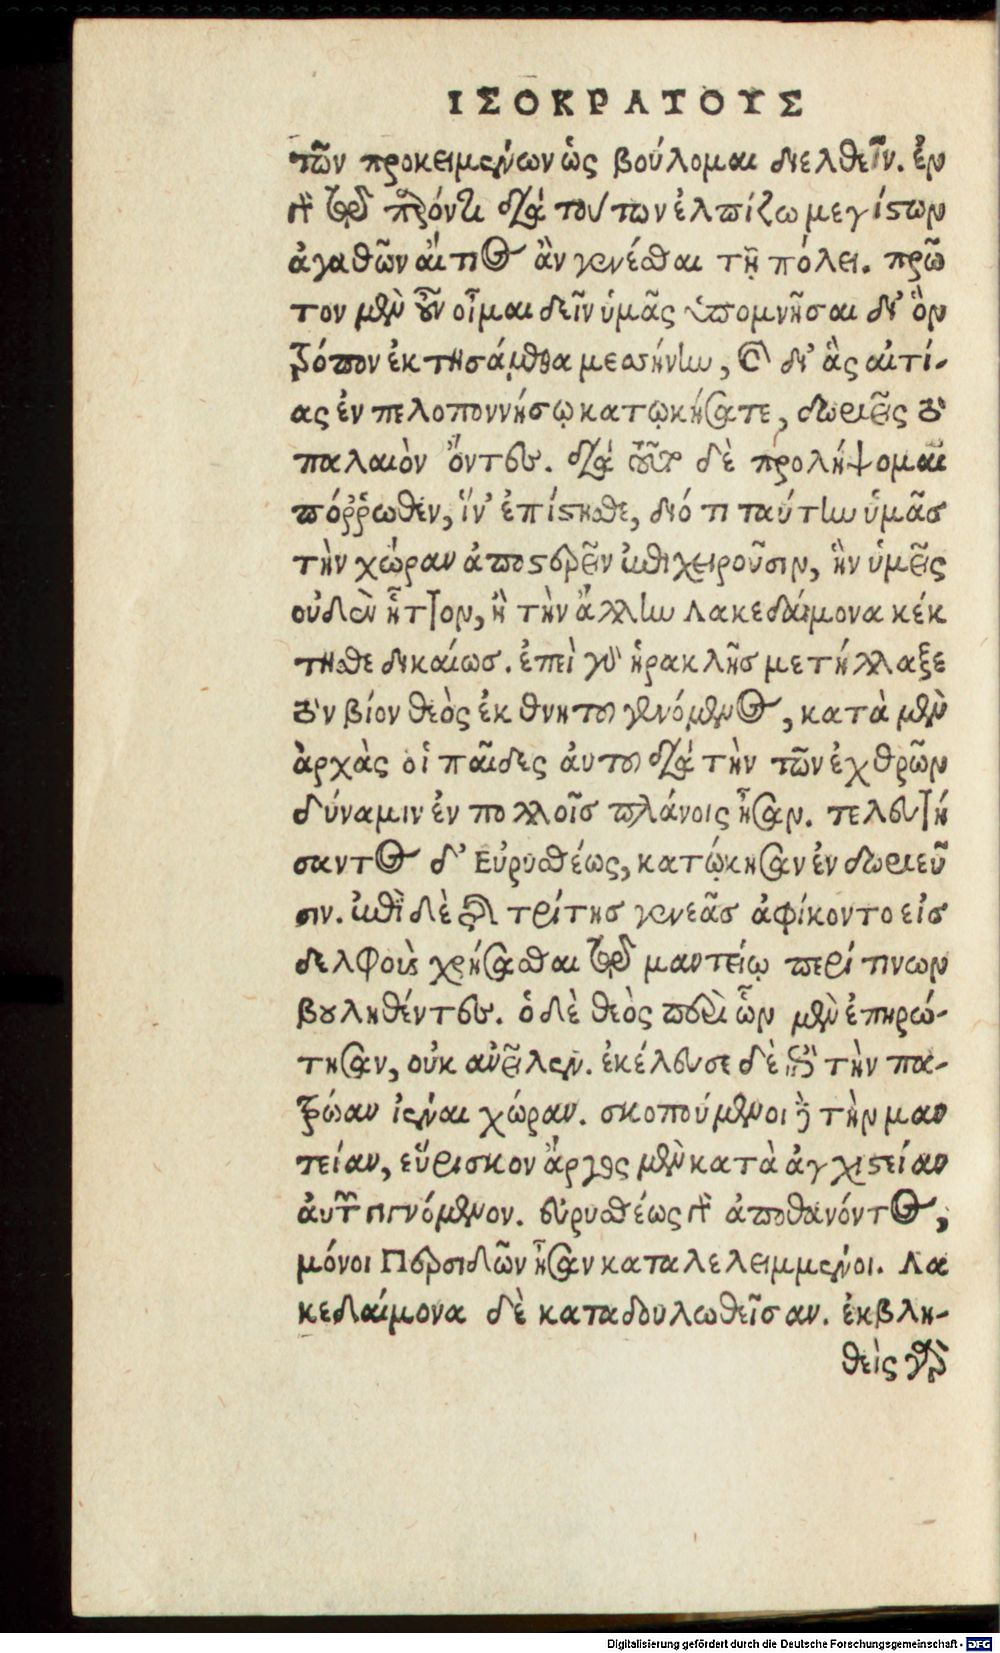 ΙΣΟΚΡΑΤΟΥΣ
τῶν προκειμένων ὡς βούλομαι διελθεῖν. ἐν
γὰρ τῷ παρόντι διὰ τούτων ἐλπίζω μεγίστων
ἀγαθῶν αἴτιος ἂν γενέσθαι τῇ πόλει. πρῶ
τον μὲν οὖν οἶμαι δεῖν ὑμᾶς ὑπομνῆσαι δι' ὃν
τρόπον ἐκτησάμεθα μεσήνην, καὶ δι' ἃς αἰτί-
ας ἐν πελοποννήσῳ κατῳκήσατε, δωριεῖς τὸ
παλαιὸν ὄντες. διὰ τοῦτο δὲ προλήψομαι
πόῤῥωθεν, ἵν' ἐπίστησθε, διότι ταύτην ὑμᾶσ
τὴν χώραν ἀποστερεῖν ἐπιχειροῦσιν, ἣν ὑμεῖς
οὐδὲν ἧττον, ἢ τὴν ἄλλην Λακεδαίμονα κέκ
τησθε δικαίωσ. ἐπεὶ γὰρ ἡρακλῆσ μετήλλαξε
τὸν βίον θεὸς ἐκ θνητοῦ γενόμενος, κατὰ μὲν
ἀρχὰς οἱ παῖδες ἀυτοῦ διὰ τὴν τῶν ἐχθρῶν
δύναμιν ἐν πολλοῖσ πλάνοις ἦσαν. τελευτή
σαντος δ' Εὐρυσθέως, κατῴκησαν ἐν δωριεῦ
σιν. ἐπὶ δὲ τρίτησ γενεᾶσ ἀφίκοντο εἰσ
δελφοὺς χρήσασθαι τῷ μαντείῳ περί τινων
βουληθέντες. ὁ δὲ θεὸς περὶ ὧν μὲν ἐπηρώ-
τησαν, οὐκ ἀνεῖλεν. ἐκέλευσε δὲ ἐπὶ τὴν πα-
τρώαν ἰέναι χώραν. σκοπούμενοι δὲ τὴν μαν
τείαν, εὕρισκον ἄργος μὲν κατὰ ἀγχιστείαν
ἀυτῶν γιγνόμενον. ευρυσθέως γὰρ ἀποθανόντος,
μόνοι Περσιδῶν ἦσαν καταλελειμμένοι. Λα
κεδαίμονα δὲ καταδουλωθεῖσαν. ἐκβλη-
θεὶς γὰρ
Digitalisierung gefördert durch die Deutsche Forschungsgemeinschaft - DFG